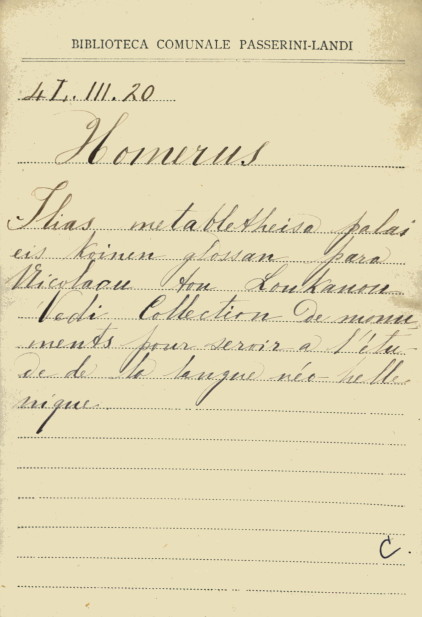 BIBLIOTECA COMUNALE PASSERINI-LANDI
4L.III.20
Homerus
Ilias metabletheisa palai
eis koinen glossan para
Nicolaou tou Loukanou
Vedi Collection de monu-
ments pour servir a l'étu-
de de la langue néo-helle-
nique.
C.